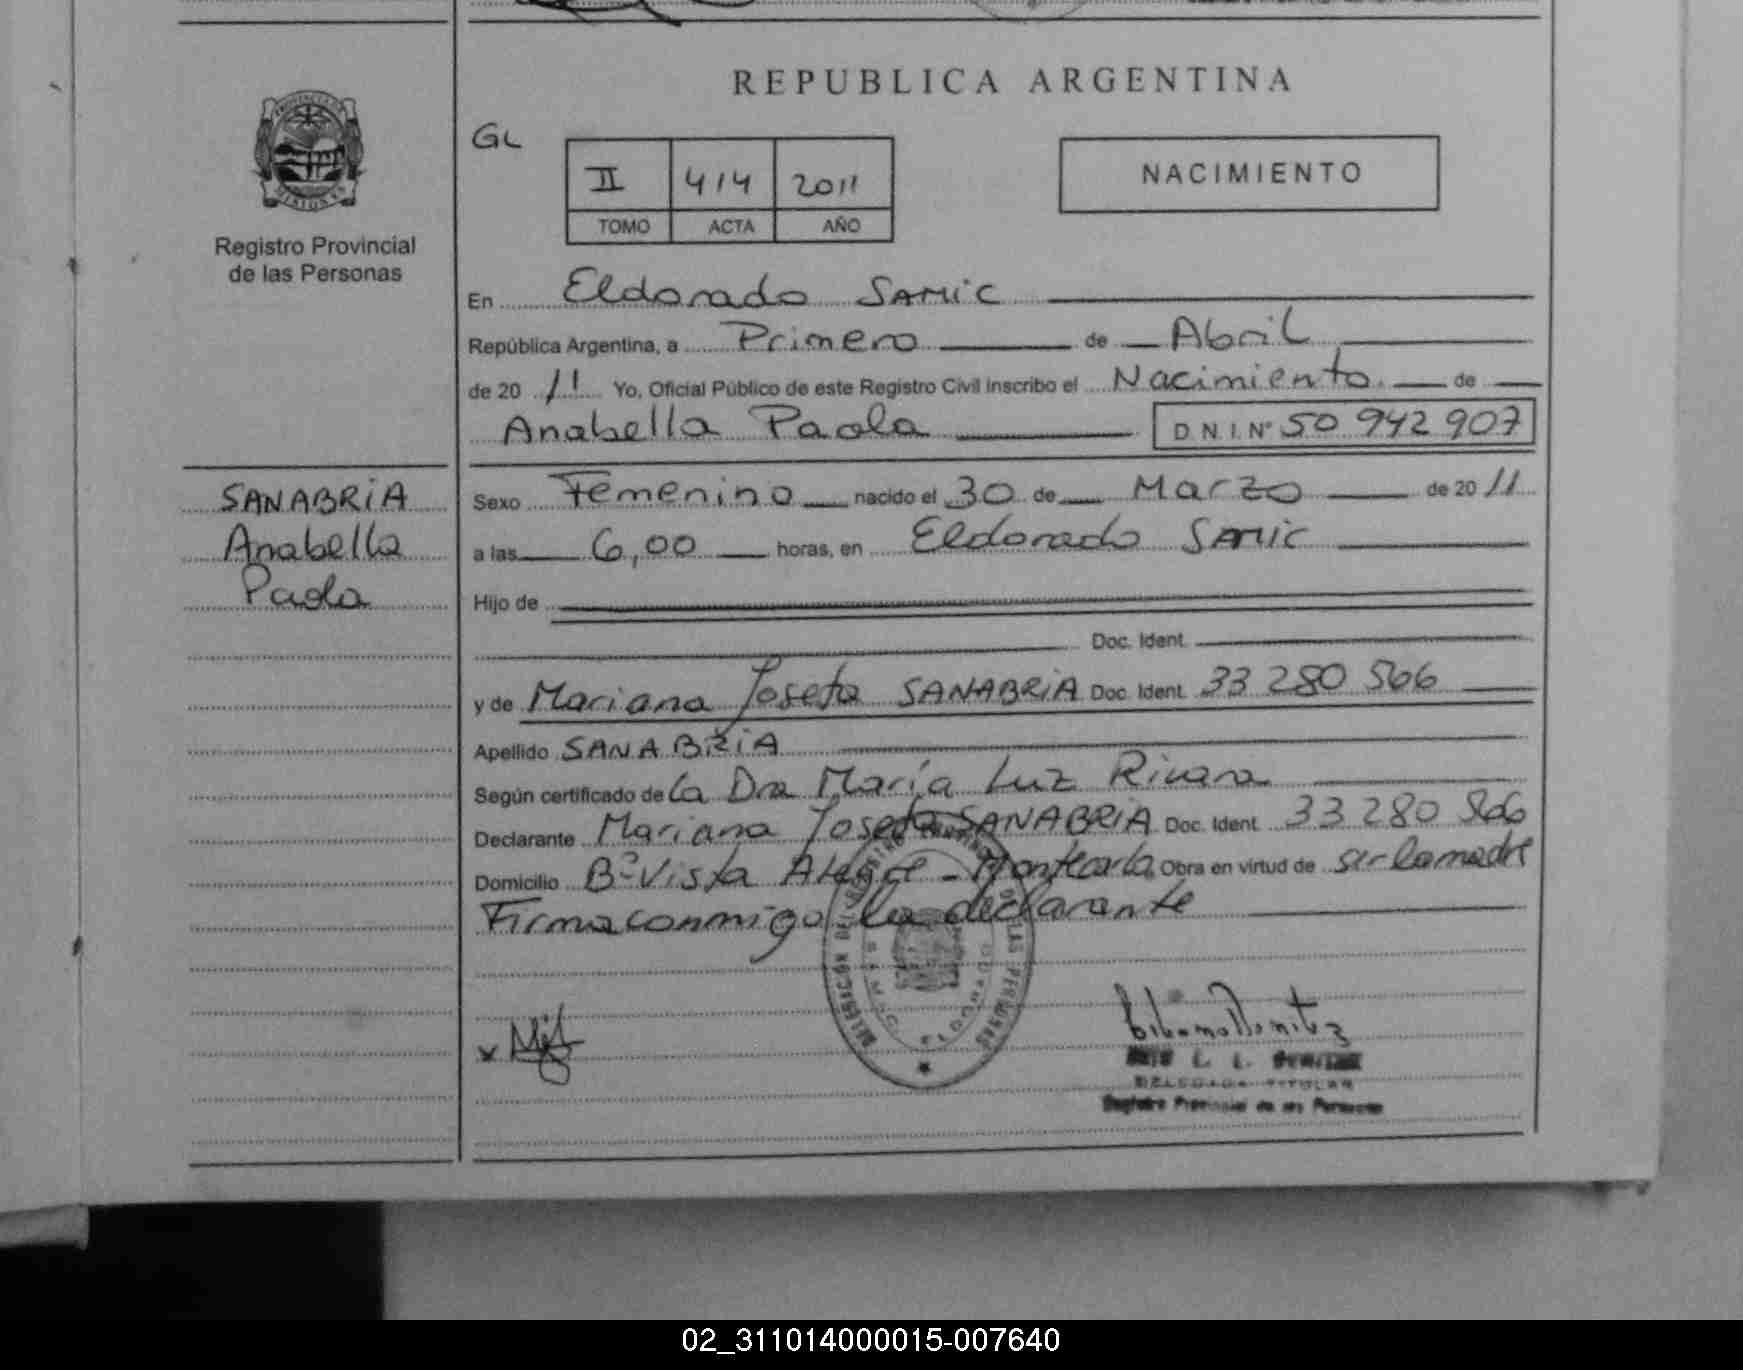 REPUBLICA ARGENTINA
PROVINCIA DE MISIONES
Registro Provincial
de las Personas
GL
II 414 2011
TOMO ACTA AÑO
NACIMIENTO
En Eldorado SAMiC
República Argentina, a Primero de Abril
de 20 11 Yo, Oficial Público de este Registro Civil inscribo el Nacimiento de
Anabella Paola D.N.I. Nº 50 942 907
SANABRiA
Anabella
Paola
Sexo Femenino nacido el 30 de Marzo de 20 11
a las 6,00 horas, en Eldorado SAMic
Hijo de
Doc. Ident.
y de Mariana Josefa SANABRiA Doc. Ident. 33 280 566
Apellido SANABRiA
Según certificado de la Dra María Luz Rivara
Declarante Mariana Josefa SANABRiA Doc. Ident. 33 280 566
Domicilio Bº Vista Alegre - Montecarlo Obra en virtud de ser la madre
Firma conmigo la declarante
DELEGADA TITULAR
Registro Provincial de las Personas
02_311014000015-007640